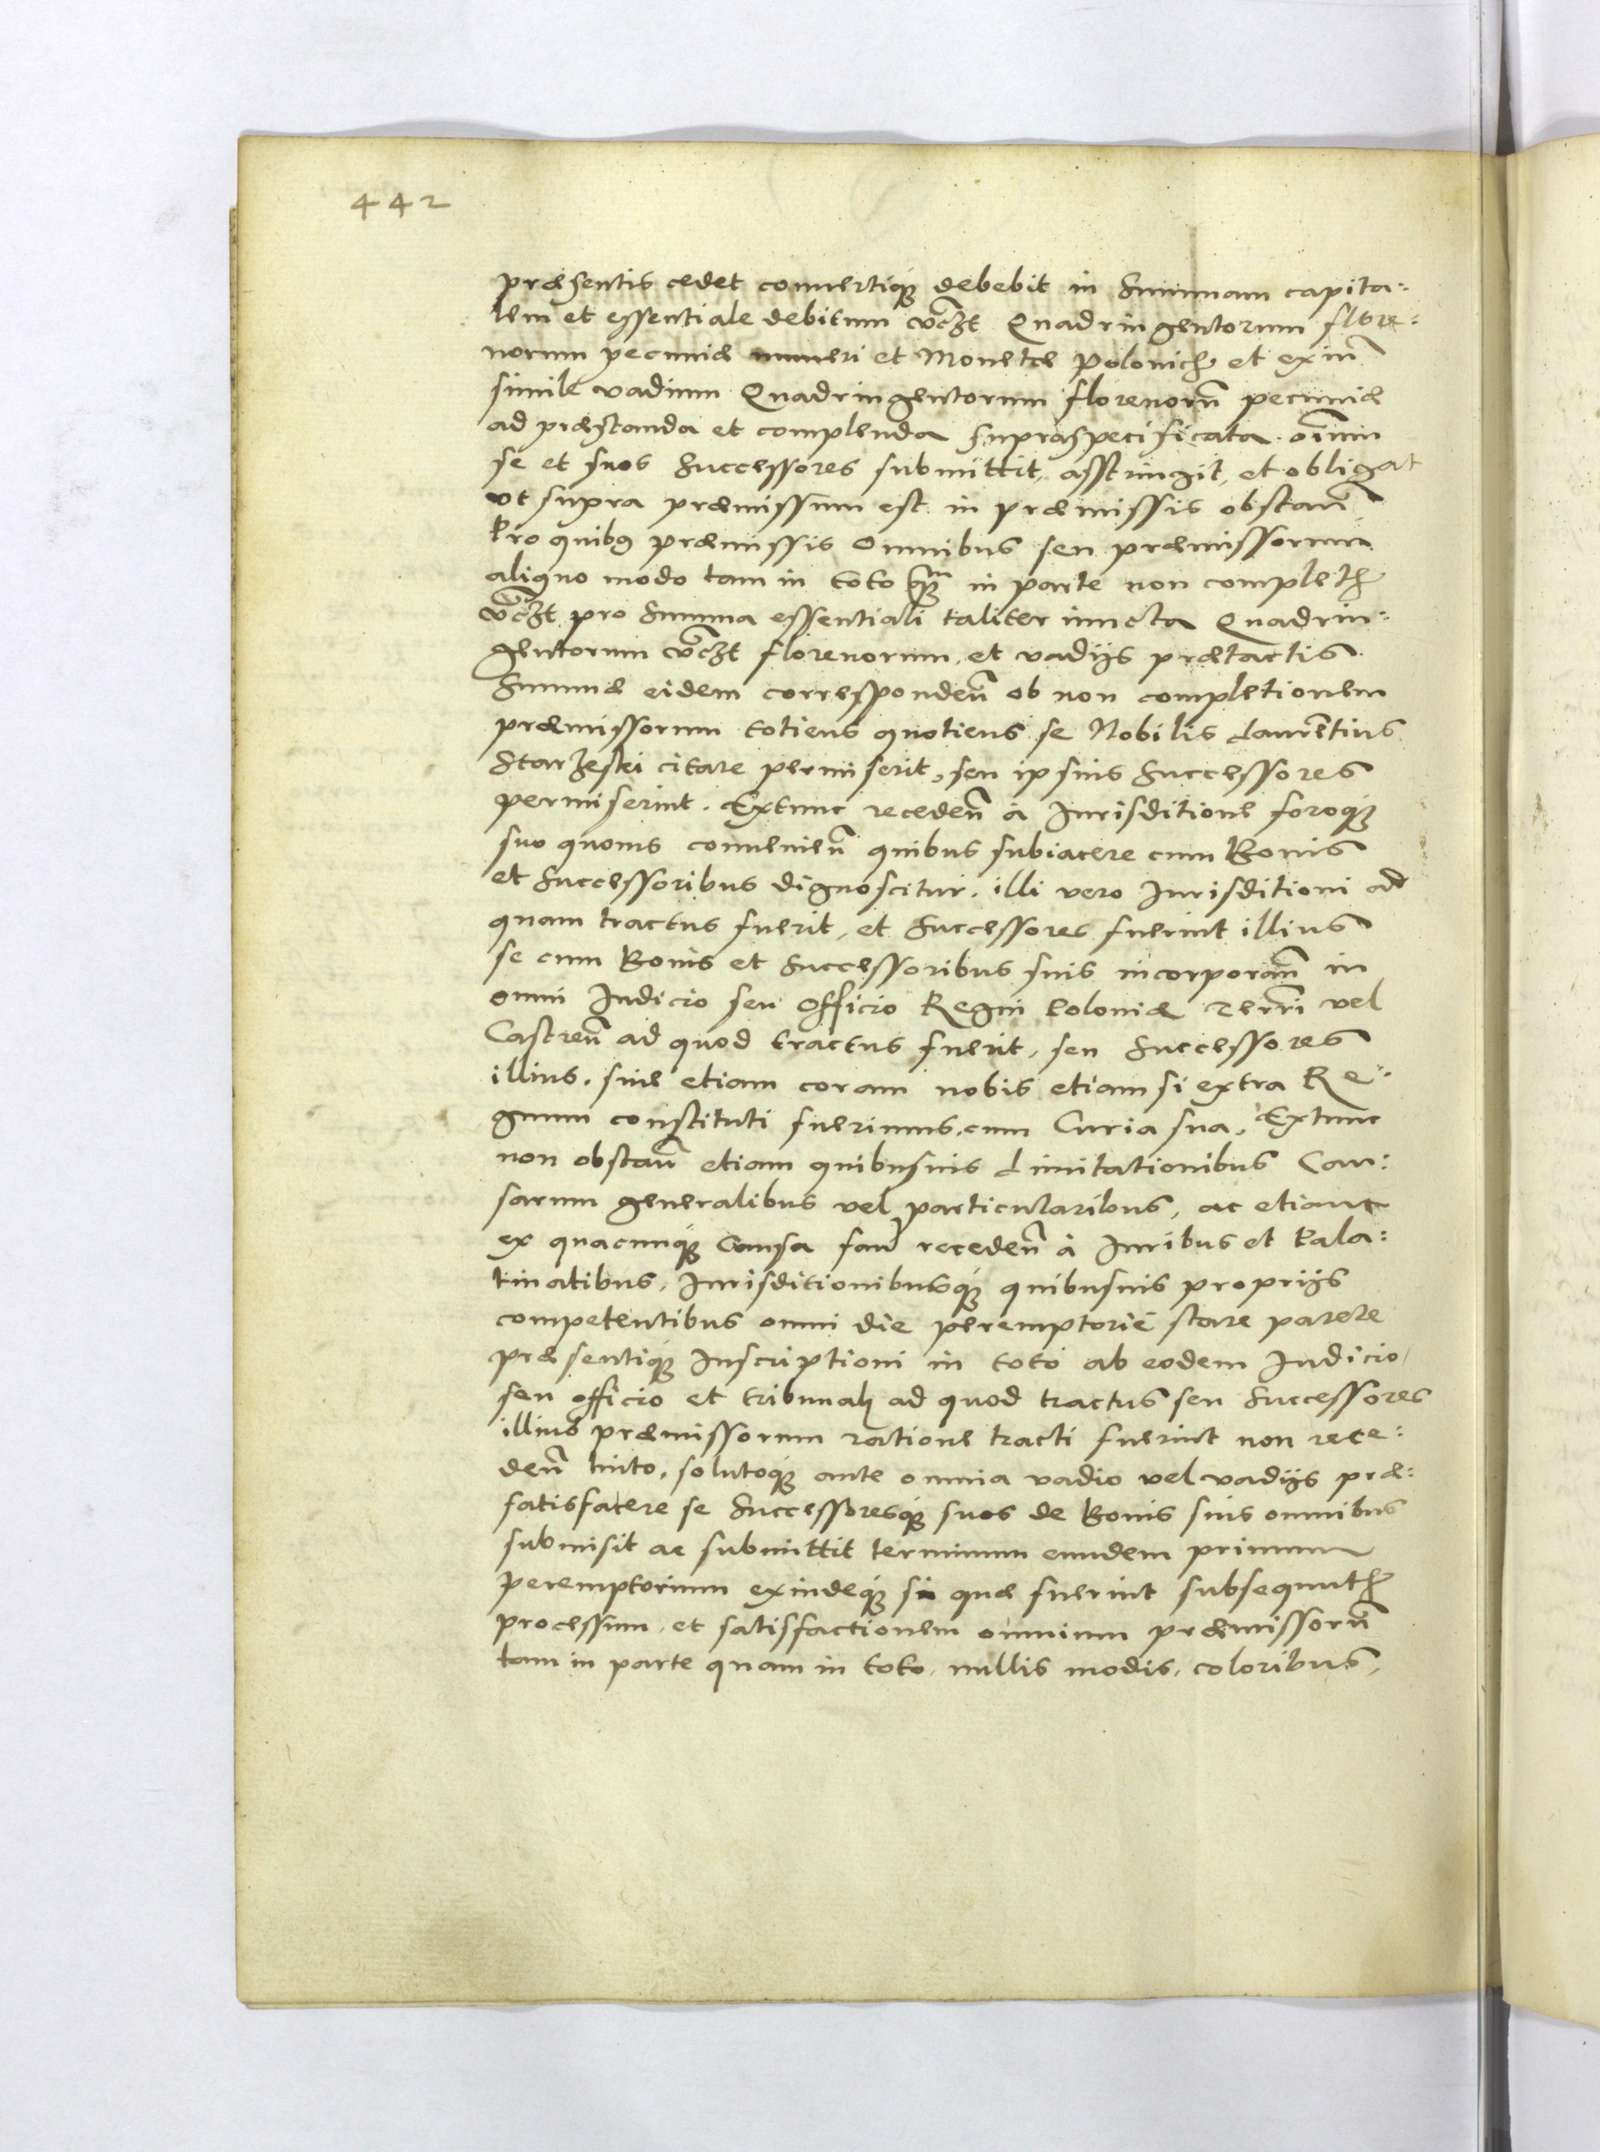 442
præsentis cedet conuertiq́ꝫ debebit in Summam capita:
lem et essentiale debitum vcȝt Quadringentorum flore:
norum pecuniæ numeri et Monetæ Polonich et exin̄
simile vadium Quadringentorum florenorū pecuniæ
ad præstanda et complenda supraspecificata oīnin
se et suos Successores submittit, asstringit, et obligat
vt supra præmissum est in præmissis obstan̄
Pro quibꝰ præmissis Omnibus seu præmissorum
aliquo modo tam in toto qꝫm in parte non completh
vcȝt pro Summa essentiali taliter iuncta Quadrin:
gentorum vcȝt florenorum, et vadijs prætactis
Summæ eidem corresponden̄ ob non completionem
præmissorum totiens quotiens se Nobilis Laurētius
Starzeski citare permiserit, seu ipsius Successores
permiserint. Extunc receden̄ à Jurisditione foroq́ꝫ
suo quouis conuenien̄ quibus subiacere cum Bonis
et Successoribus dignoscitur. illi vero Jurisditioni ad
quam tractus fuerit, et Successores fuerint illius
se cum Bonis et Successoribus suis incorporan̄ in
omni Judicio seu Officio Regni Poloniæ Terrī vel
Castren̄ ad quod tractus fuerit, seu Successores
illius. siue etiam coram nobis etiam si extra Re:
gnum constituti fuerimus, cum Curia sua, Extunc
non obstan̄ etiam quibusuis Limitationibus Cau:
sarum generalibus vel particularibus, ac etiam
ex quacunq́ꝫ Causa fan̄ receden̄ à Juribus et Pala:
tinatibus, Jurisditionibusq́ꝫ quibusuis proprijs
competentibus omni die peremptoriè stare parere
præsentiq́ꝫ Inscriptioni in toto ab eodem Judicio
seu officio et tribunali ad quod tractus seu Successores
illius præmissorum ratione tracti fuerint non rece:
den̄ luito, solutoq́ꝫ ante omnia vadio vel vadijs præ:
satisfacere se Successoresq́ꝫ suos de Bonis suis omnibus
submisit ac submittit terminum eundem primum
peremptorium exindeq́ꝫ si quæ fuerint subsequuth
processum, et satisfactionem omnium præmissorū
tam in parte quam in toto, nullis modis, coloribus,